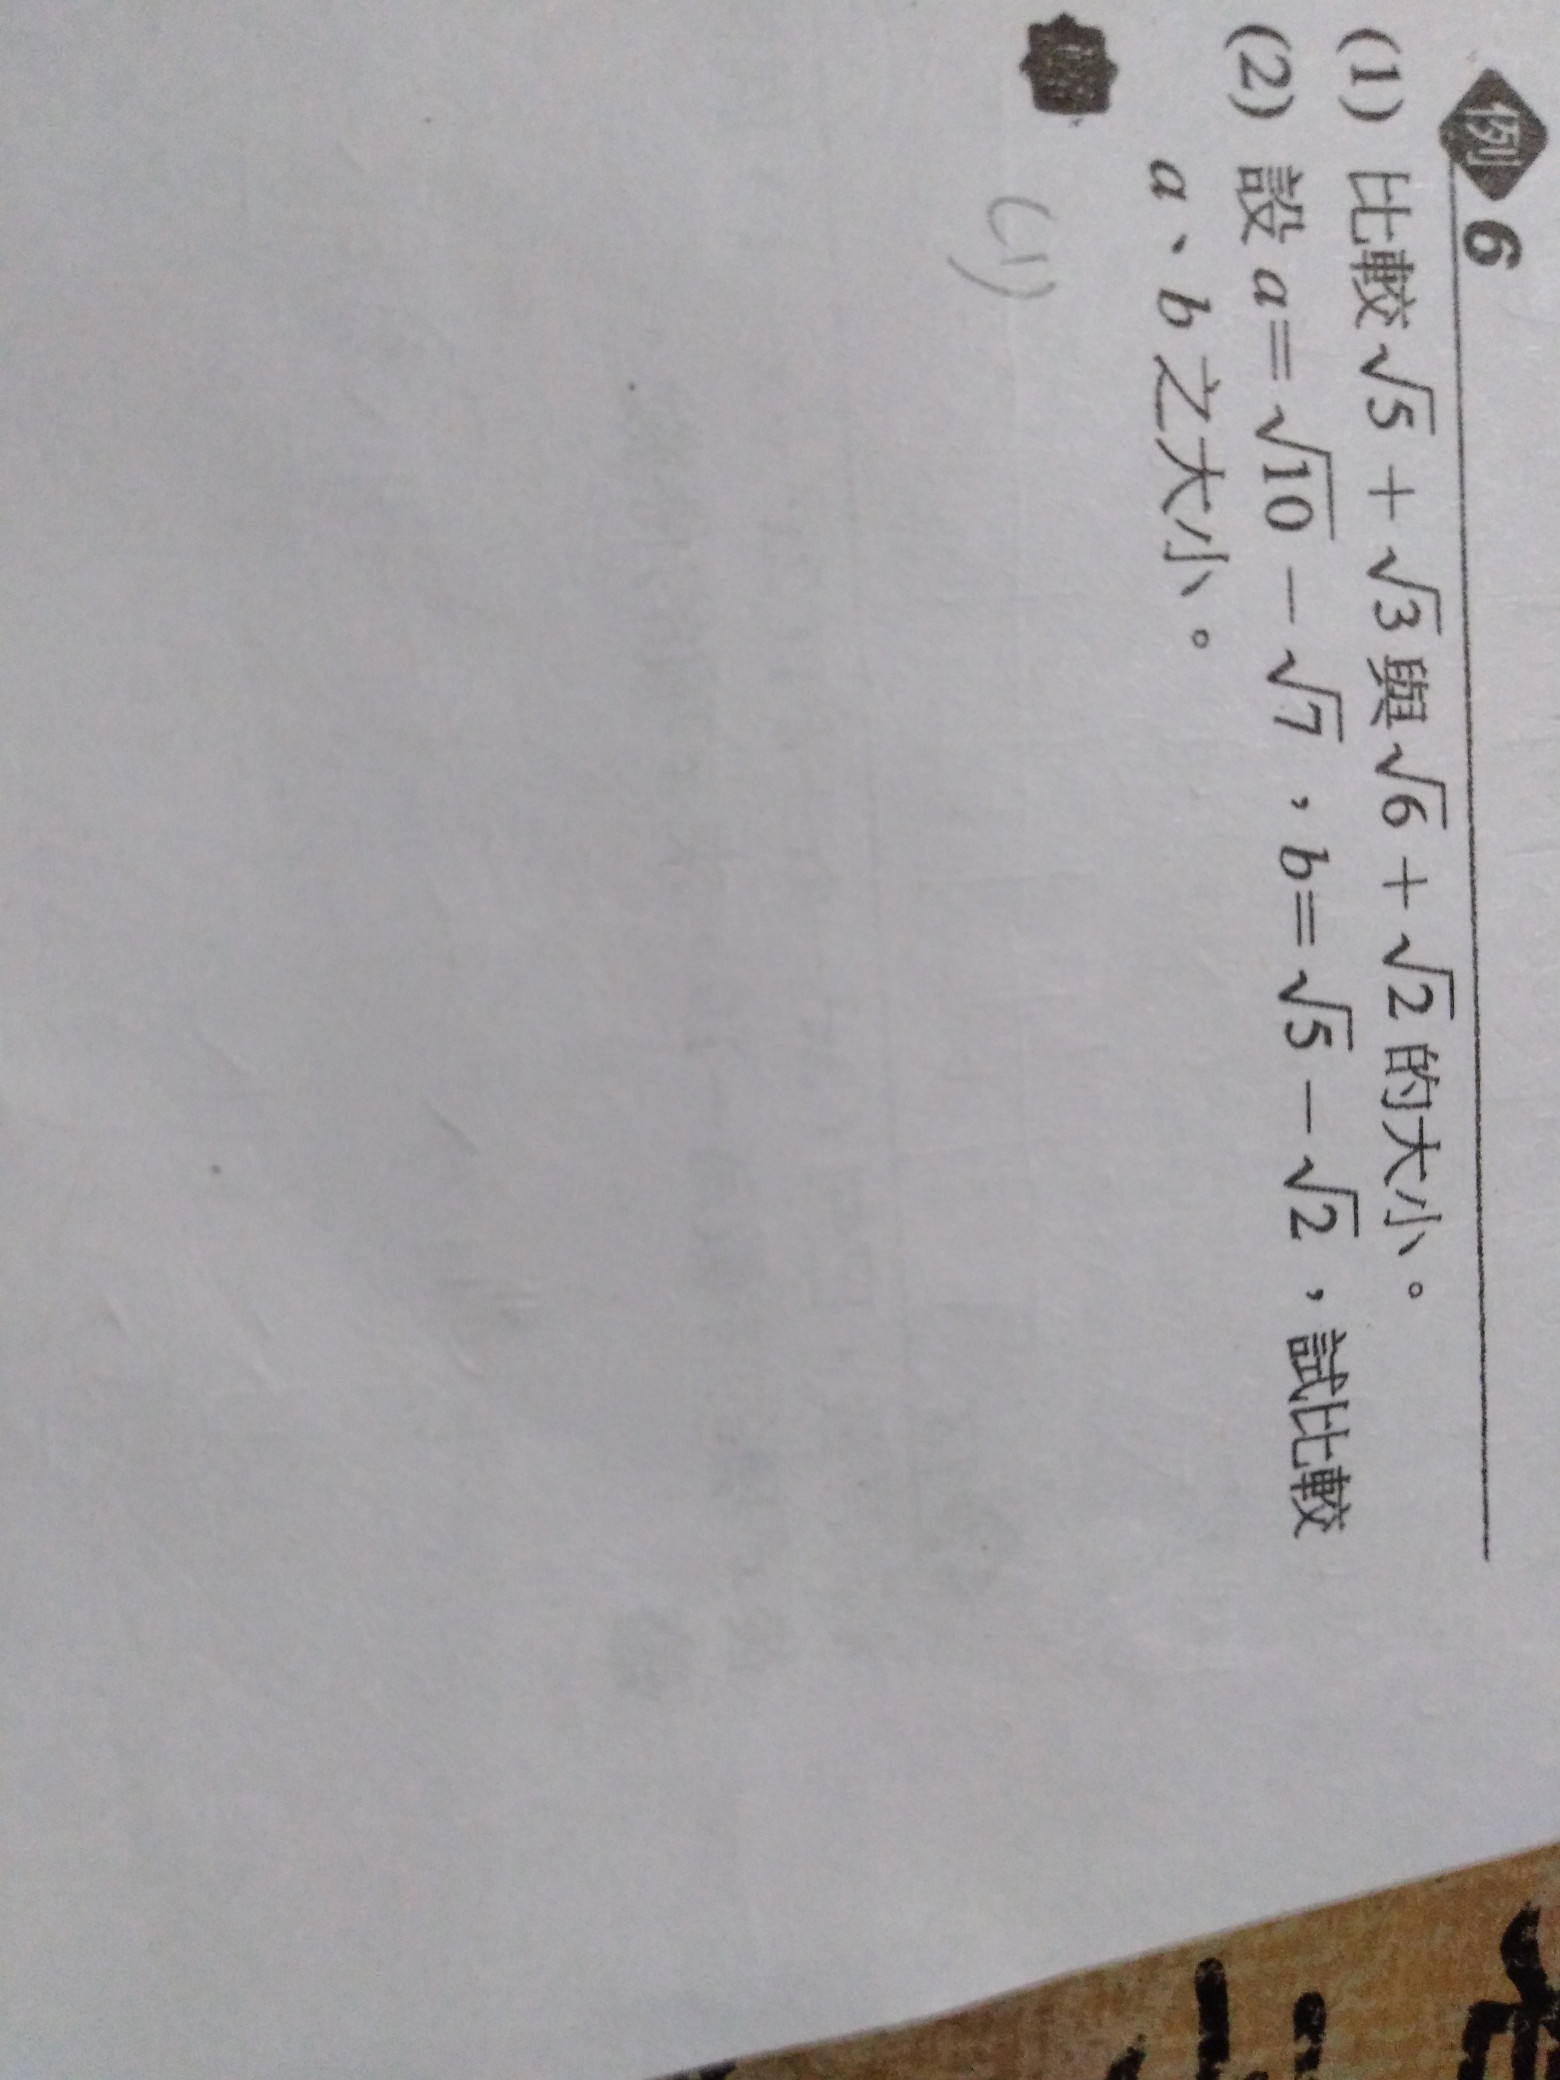 例 6
(1) 比較√5 + √3與√6 + √2的大小。
(2) 設 a=√10 − √7，b=√5 − √2，試比較
a、b 之大小。
解
(1)